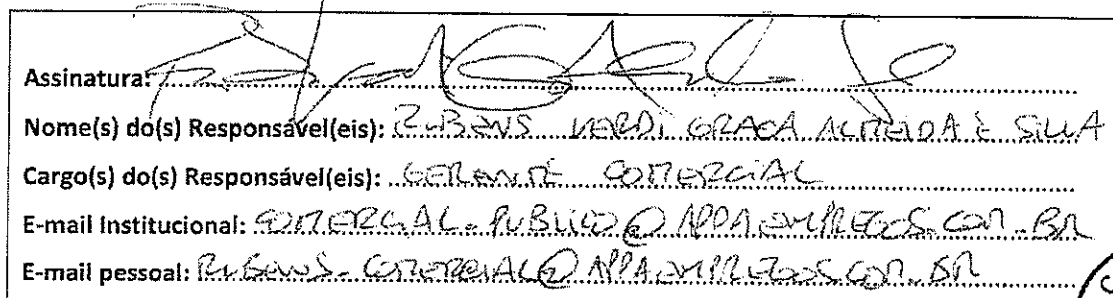 Assinatura:
Nome(s) do(s) Responsável(eis): RUBENS VERDI GRAÇA ALMEIDA E SILVA
Cargo(s) do(s) Responsável(eis): GERENTE COMERCIAL
E-mail Institucional: COMERCIAL.PUBLICO@APPAEMPREGOS.COM.BR
E-mail pessoal: RUBENS.COMERCIAL@APPAEMPREGOS.COM.BR